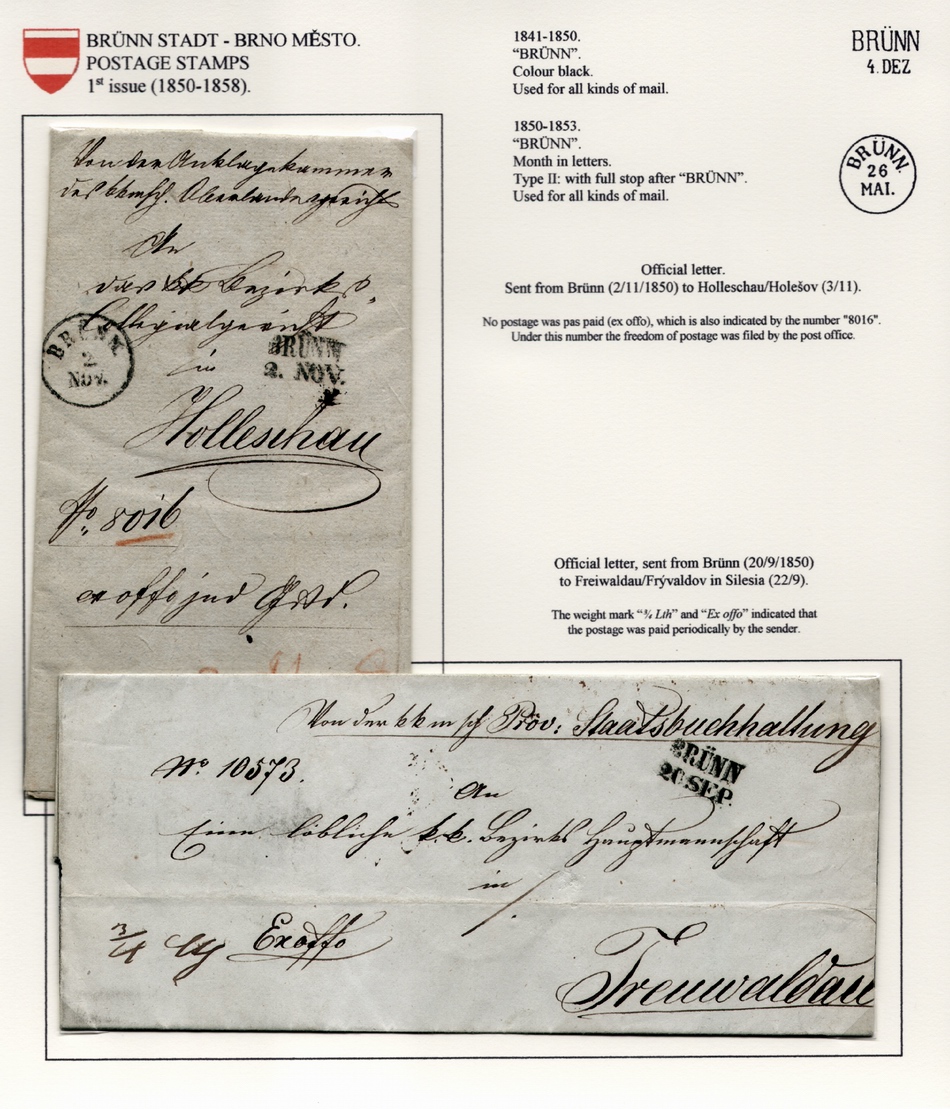 BRÜNN STADT - BRNO MĚSTO.
POSTAGE STAMPS
1st issue (1850-1858).
1841-1850.
“BRÜNN”.
Colour black.
Used for all kinds of mail.
BRÜNN
4. DEZ
1850-1853.
“BRÜNN”.
Month in letters.
Type II: with full stop after “BRÜNN”.
Used for all kinds of mail.
BRÜNN.
26
MAI.
Official letter.
Sent from Brünn (2/11/1850) to Holleschau/Holešov (3/11).
No postage was pas paid (ex offo), which is also indicated by the number "8016".
Under this number the freedom of postage was filed by the post office.
Von der Anklagekammer
des kk msch. Oberlandesgericht
An
das kk Bezirks
Collegialgericht
in
Holleschau
BRÜNN.
2.
NOV.
BRÜNN
2. NOV.
No. 8016
ex offo jud
Official letter, sent from Brünn (20/9/1850)
to Freiwaldau/Frývaldov in Silesia (22/9).
The weight mark “¾ Lth” and “Ex offo” indicated that
the postage was paid periodically by the sender.
Von der kk m sch Prov: Staatsbuchhaltung
BRÜNN
20 SEP.
No. 10573.
An
Eine löbliche k.k. Bezirks Hauptmannschaft
in
3/4 Lth Exoffo
Freuwaldau